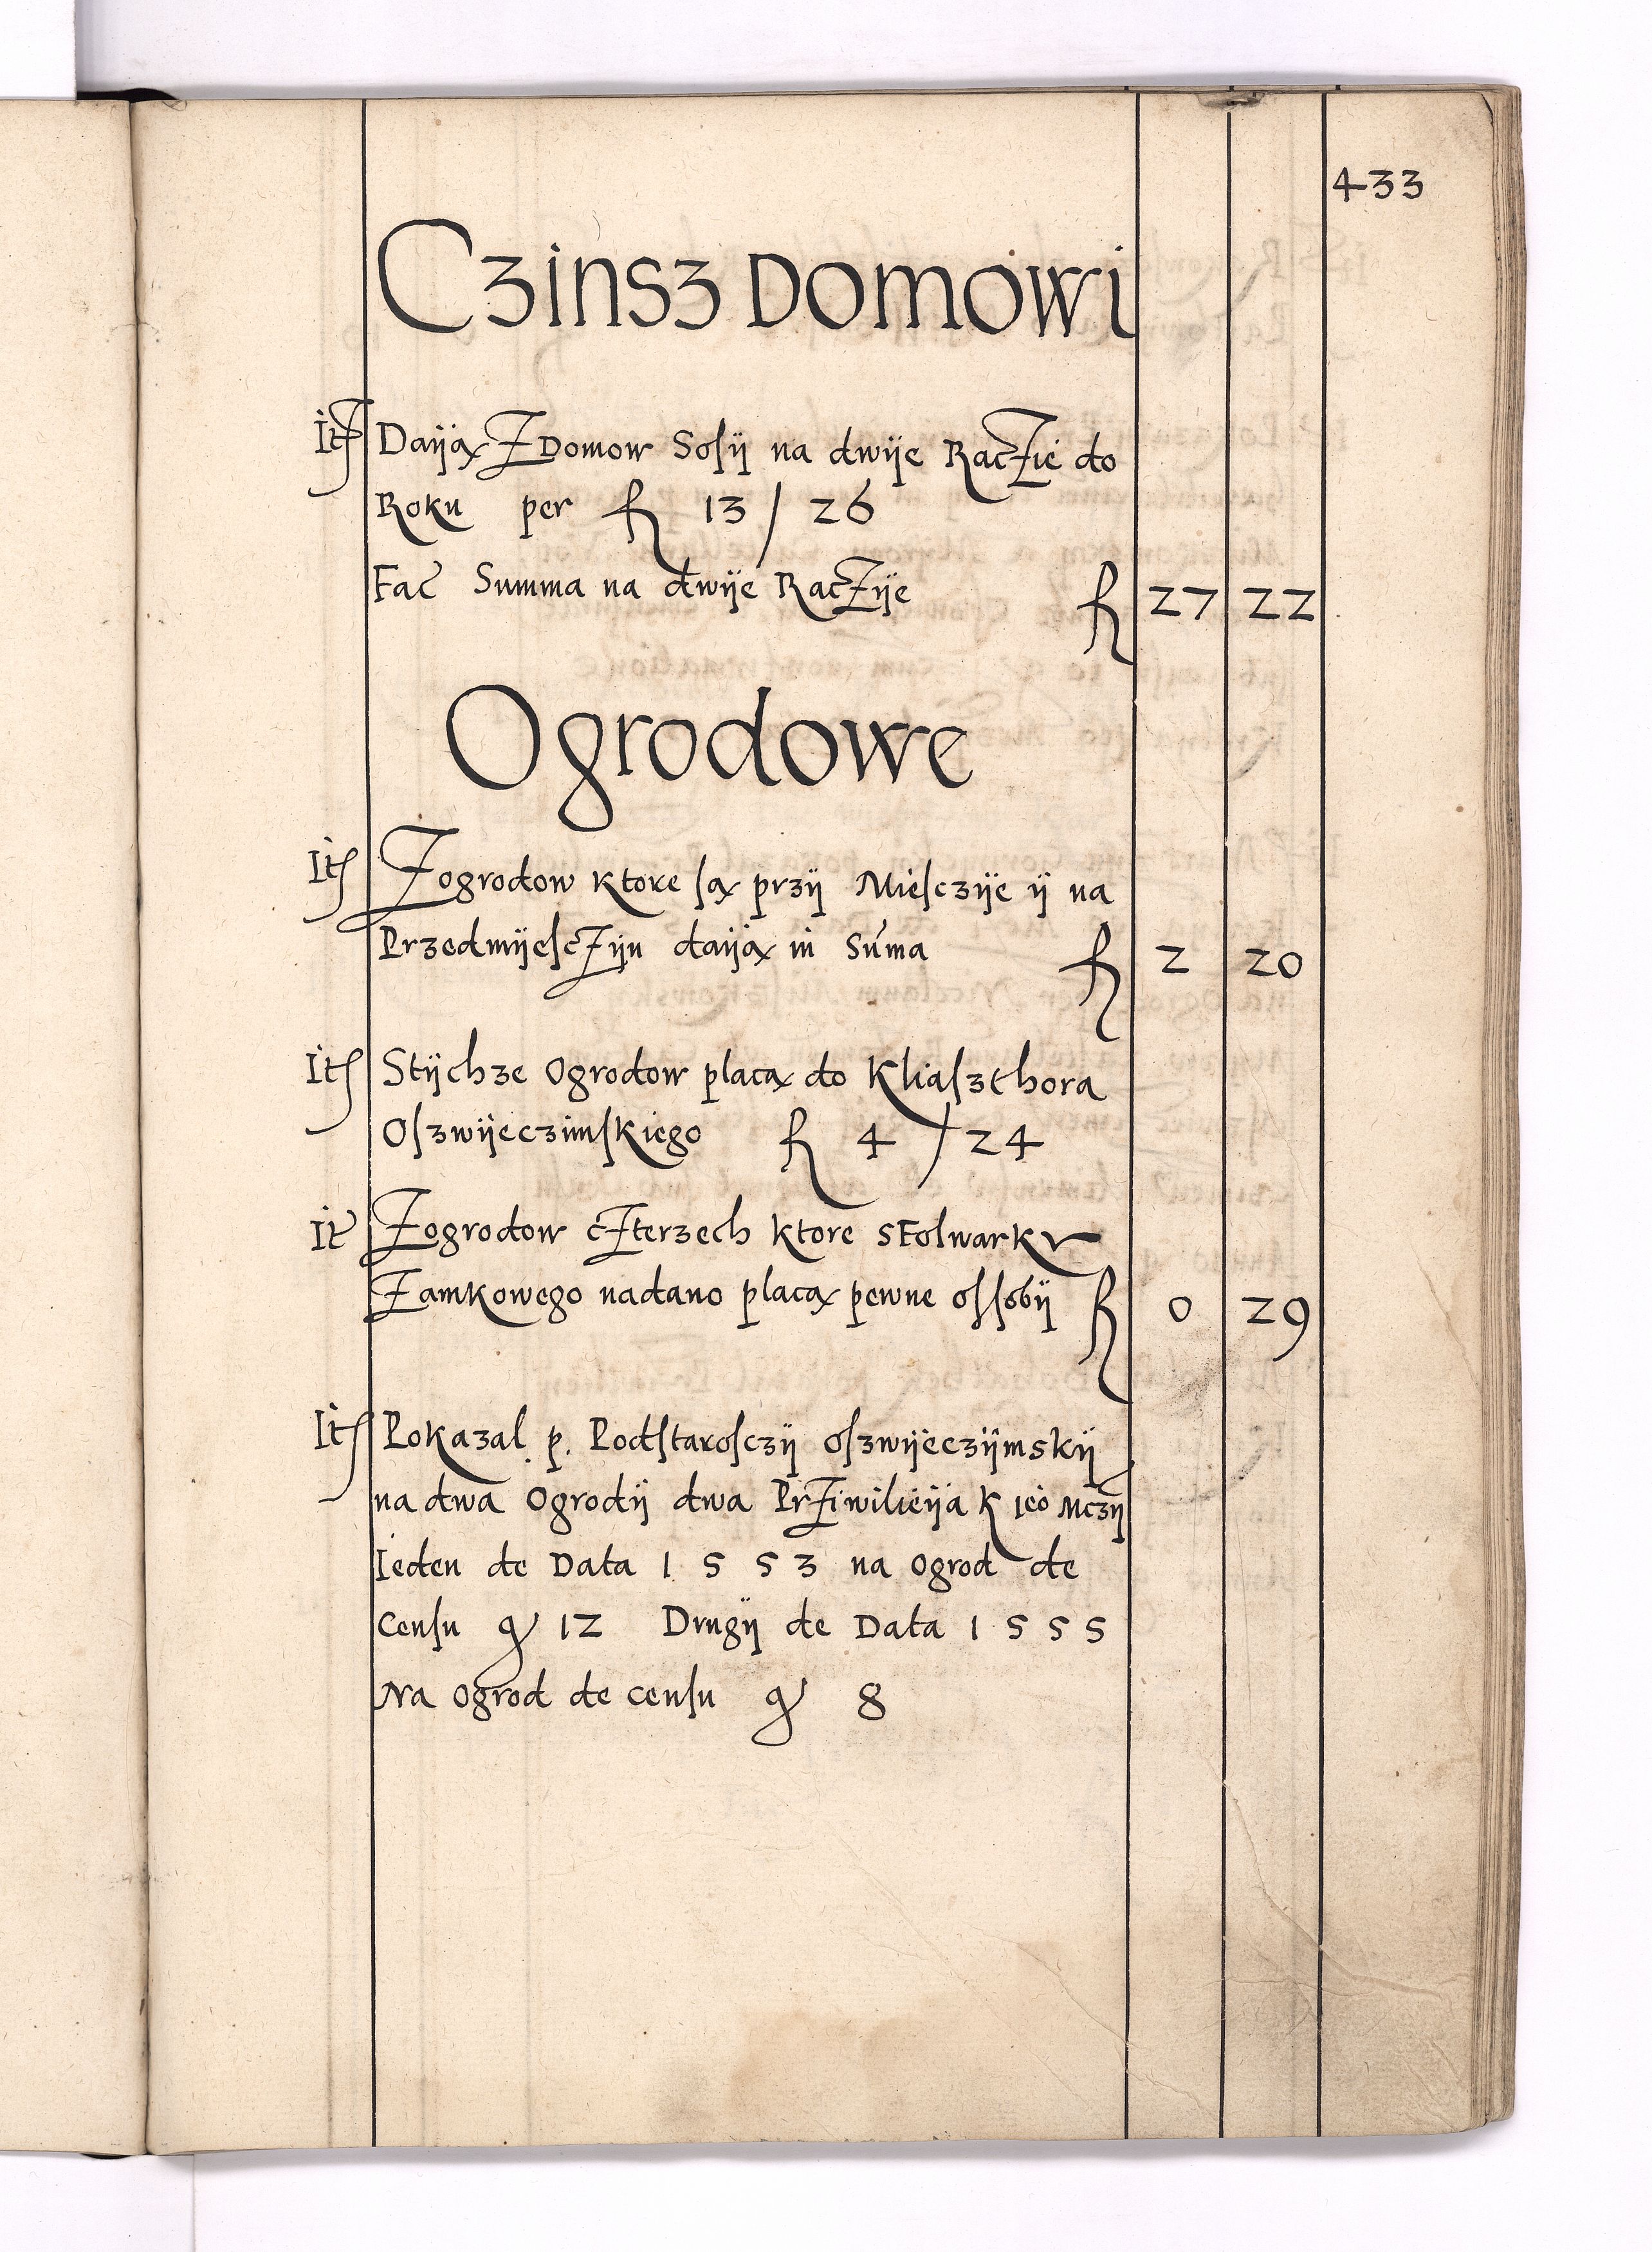 433
Czinsz Domowi
It Daiją Z Domow Soſij na dwije Raczie do
Roku per fl 13 / 26
Fac Summa na dwije Raczije fl 27 22
Ogrodowe
It Zogrodow ktore ſą przij Mieſczije ij na
Przedmijeſcziju daiją in Suma fl 2 20
It Stijchze Ogrodow placą do Kliaſzthora
Oſzwijeczimſkiego fl 4 / 24
It Zogrodow czterzech ktore sFolwarku
Zamkowego nadano placą pewne oſſobij fl 0 29
It Pokazal p. Podſtaroſczij oſzwijeczijmskij
na dwa Ogrodij dwa Prziwilieija K Ieo Mczij
Ieden de Data 1553 na Ogrod de
Cenſu g 12 Drugij de Data 1555
Na Ogrod de cenſu g 8